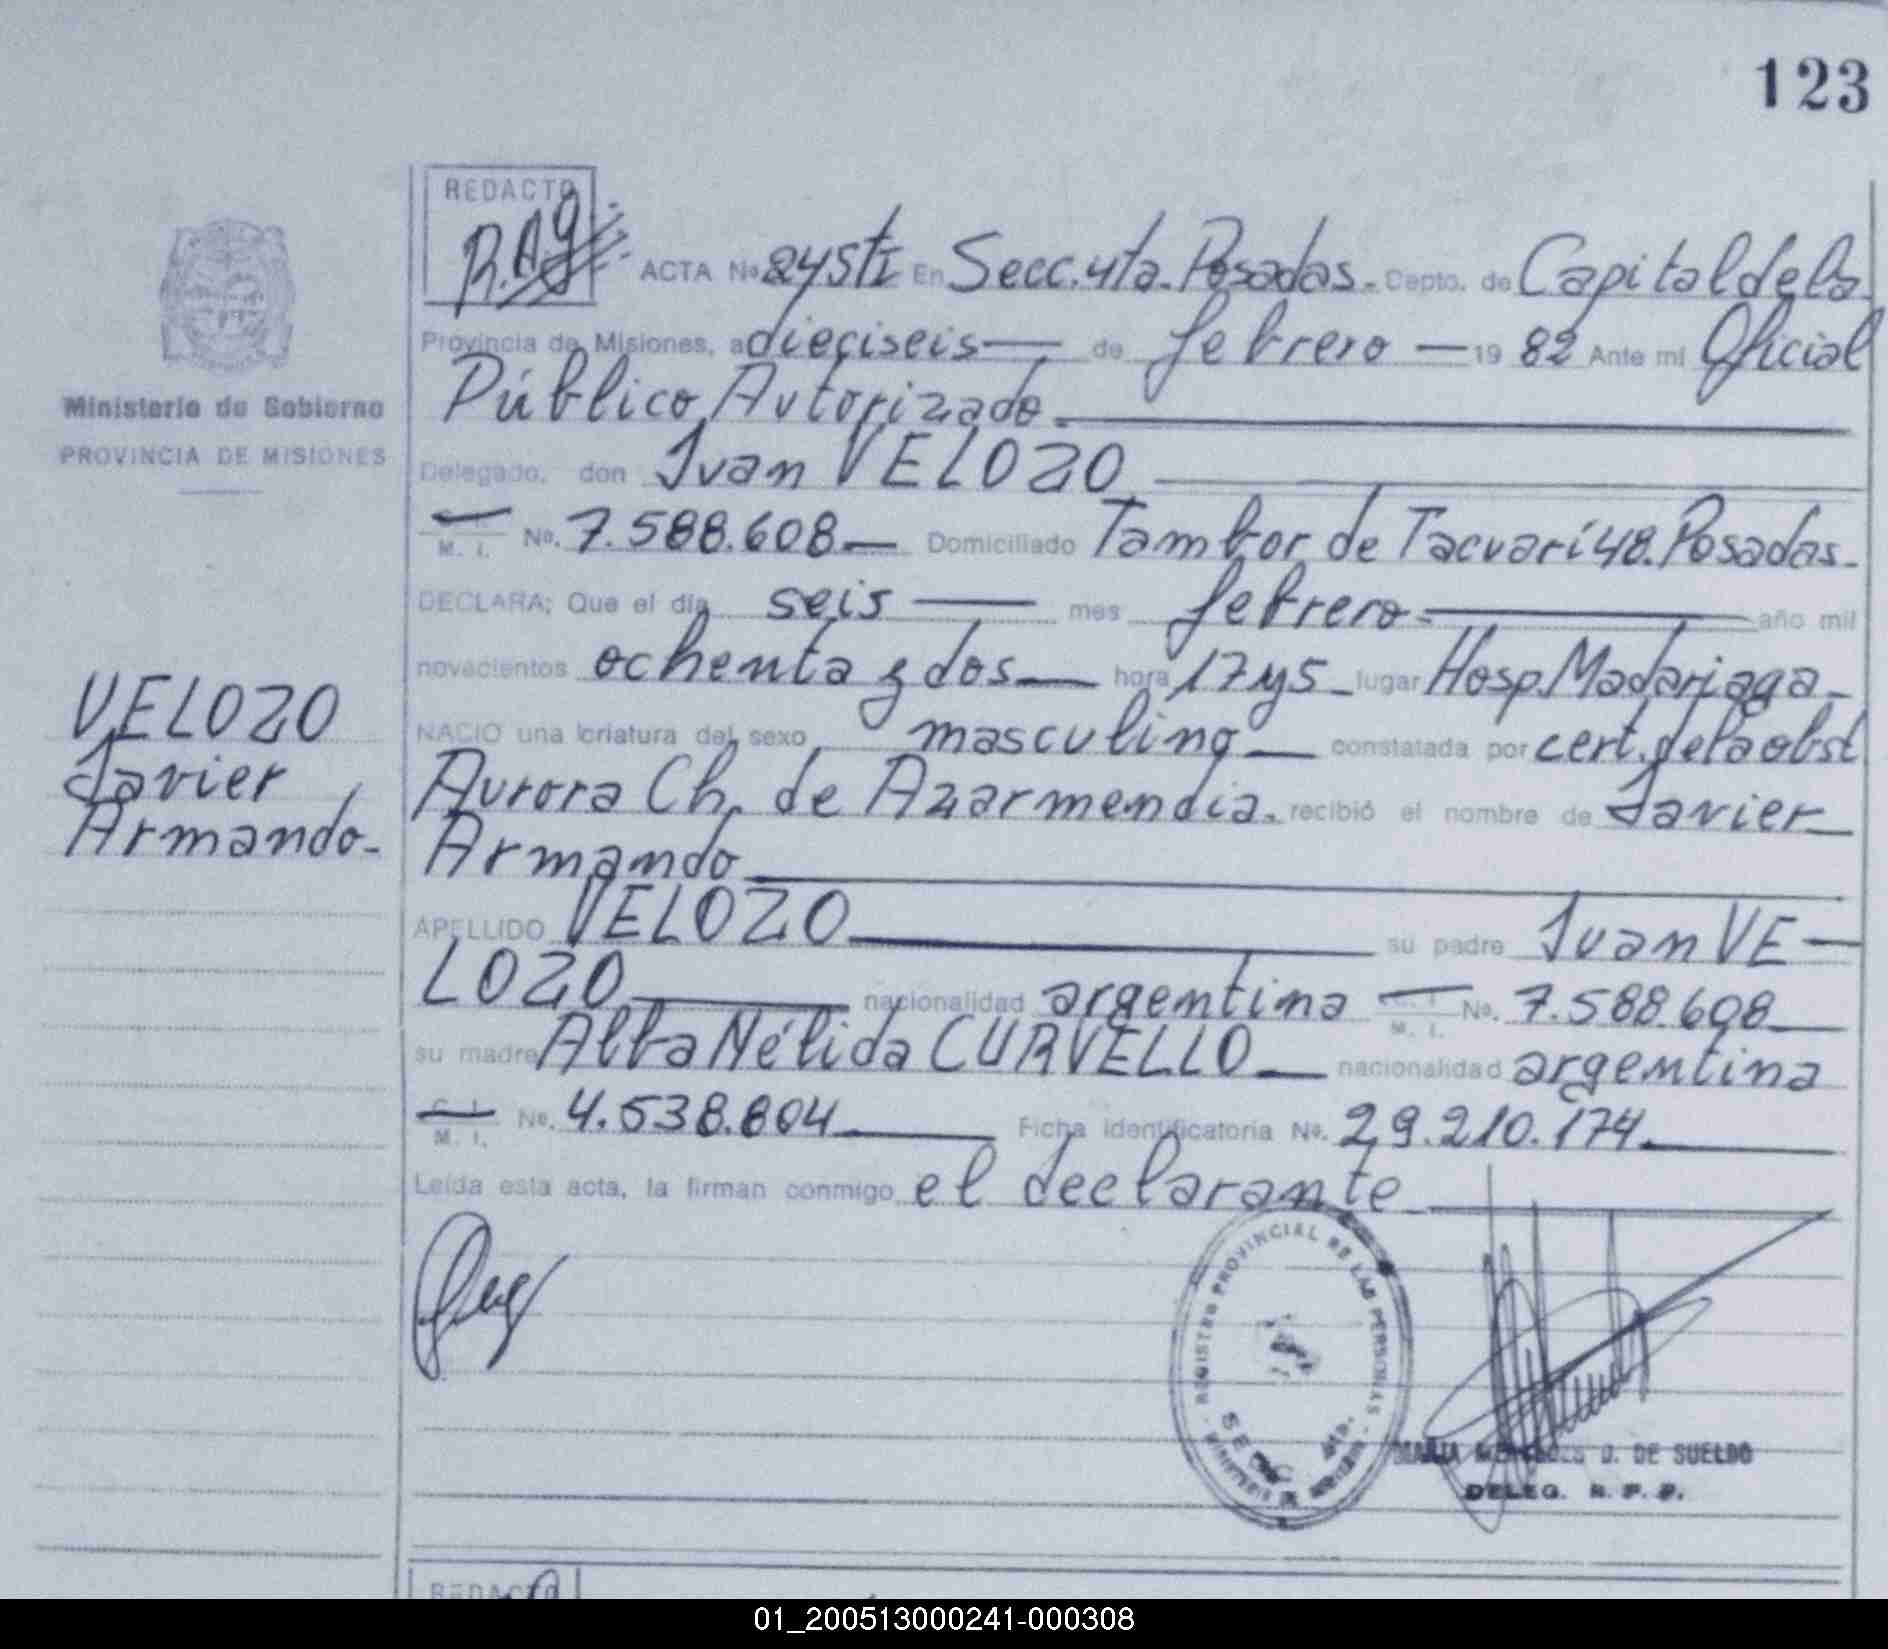 123
REDACTO
ACTA No 245 tI En Secc. 4ta. Posadas. Depto. de Capital de la
Provincia de Misiones, a dieciseis — de febrero — 19 82 Ante mi Oficial
Público Autorizado.
Ministerio de Gobierno
PROVINCIA DE MISIONES
Delegado, don Juan VELOZO
M. I. No. 7.588.608 — Domiciliado Tambor de Tacuarí 48. Posadas.
DECLARA; Que el día seis — mes febrero. — año mil
novecientos ochenta y dos — hora 17 y 5 — lugar Hosp. Madariaga —
NACIO una criatura del sexo masculino — constatada por cert. de la obst
Aurora Ch. de Azarmendia. recibió el nombre de Javier —
Armando
VELOZO
Javier
Armando-
APELLIDO VELOZO su padre Juan VE —
LOZO nacionalidad argentina C. I. M. I. No. 7.588.608
su madre Alba Nélida CURVELLO — nacionalidad argentina
C. I. M. I. No. 4.538.804 Ficha identificatoria No. 29.210.174.
Leída esta acta, la firman conmigo el declarante
REGISTRO PROVINCIAL DE LAS PERSONAS
MARIA MERCEDES D. DE SUELDO
DELEG. R. P. P.
REDACTO
01_200513000241-000308